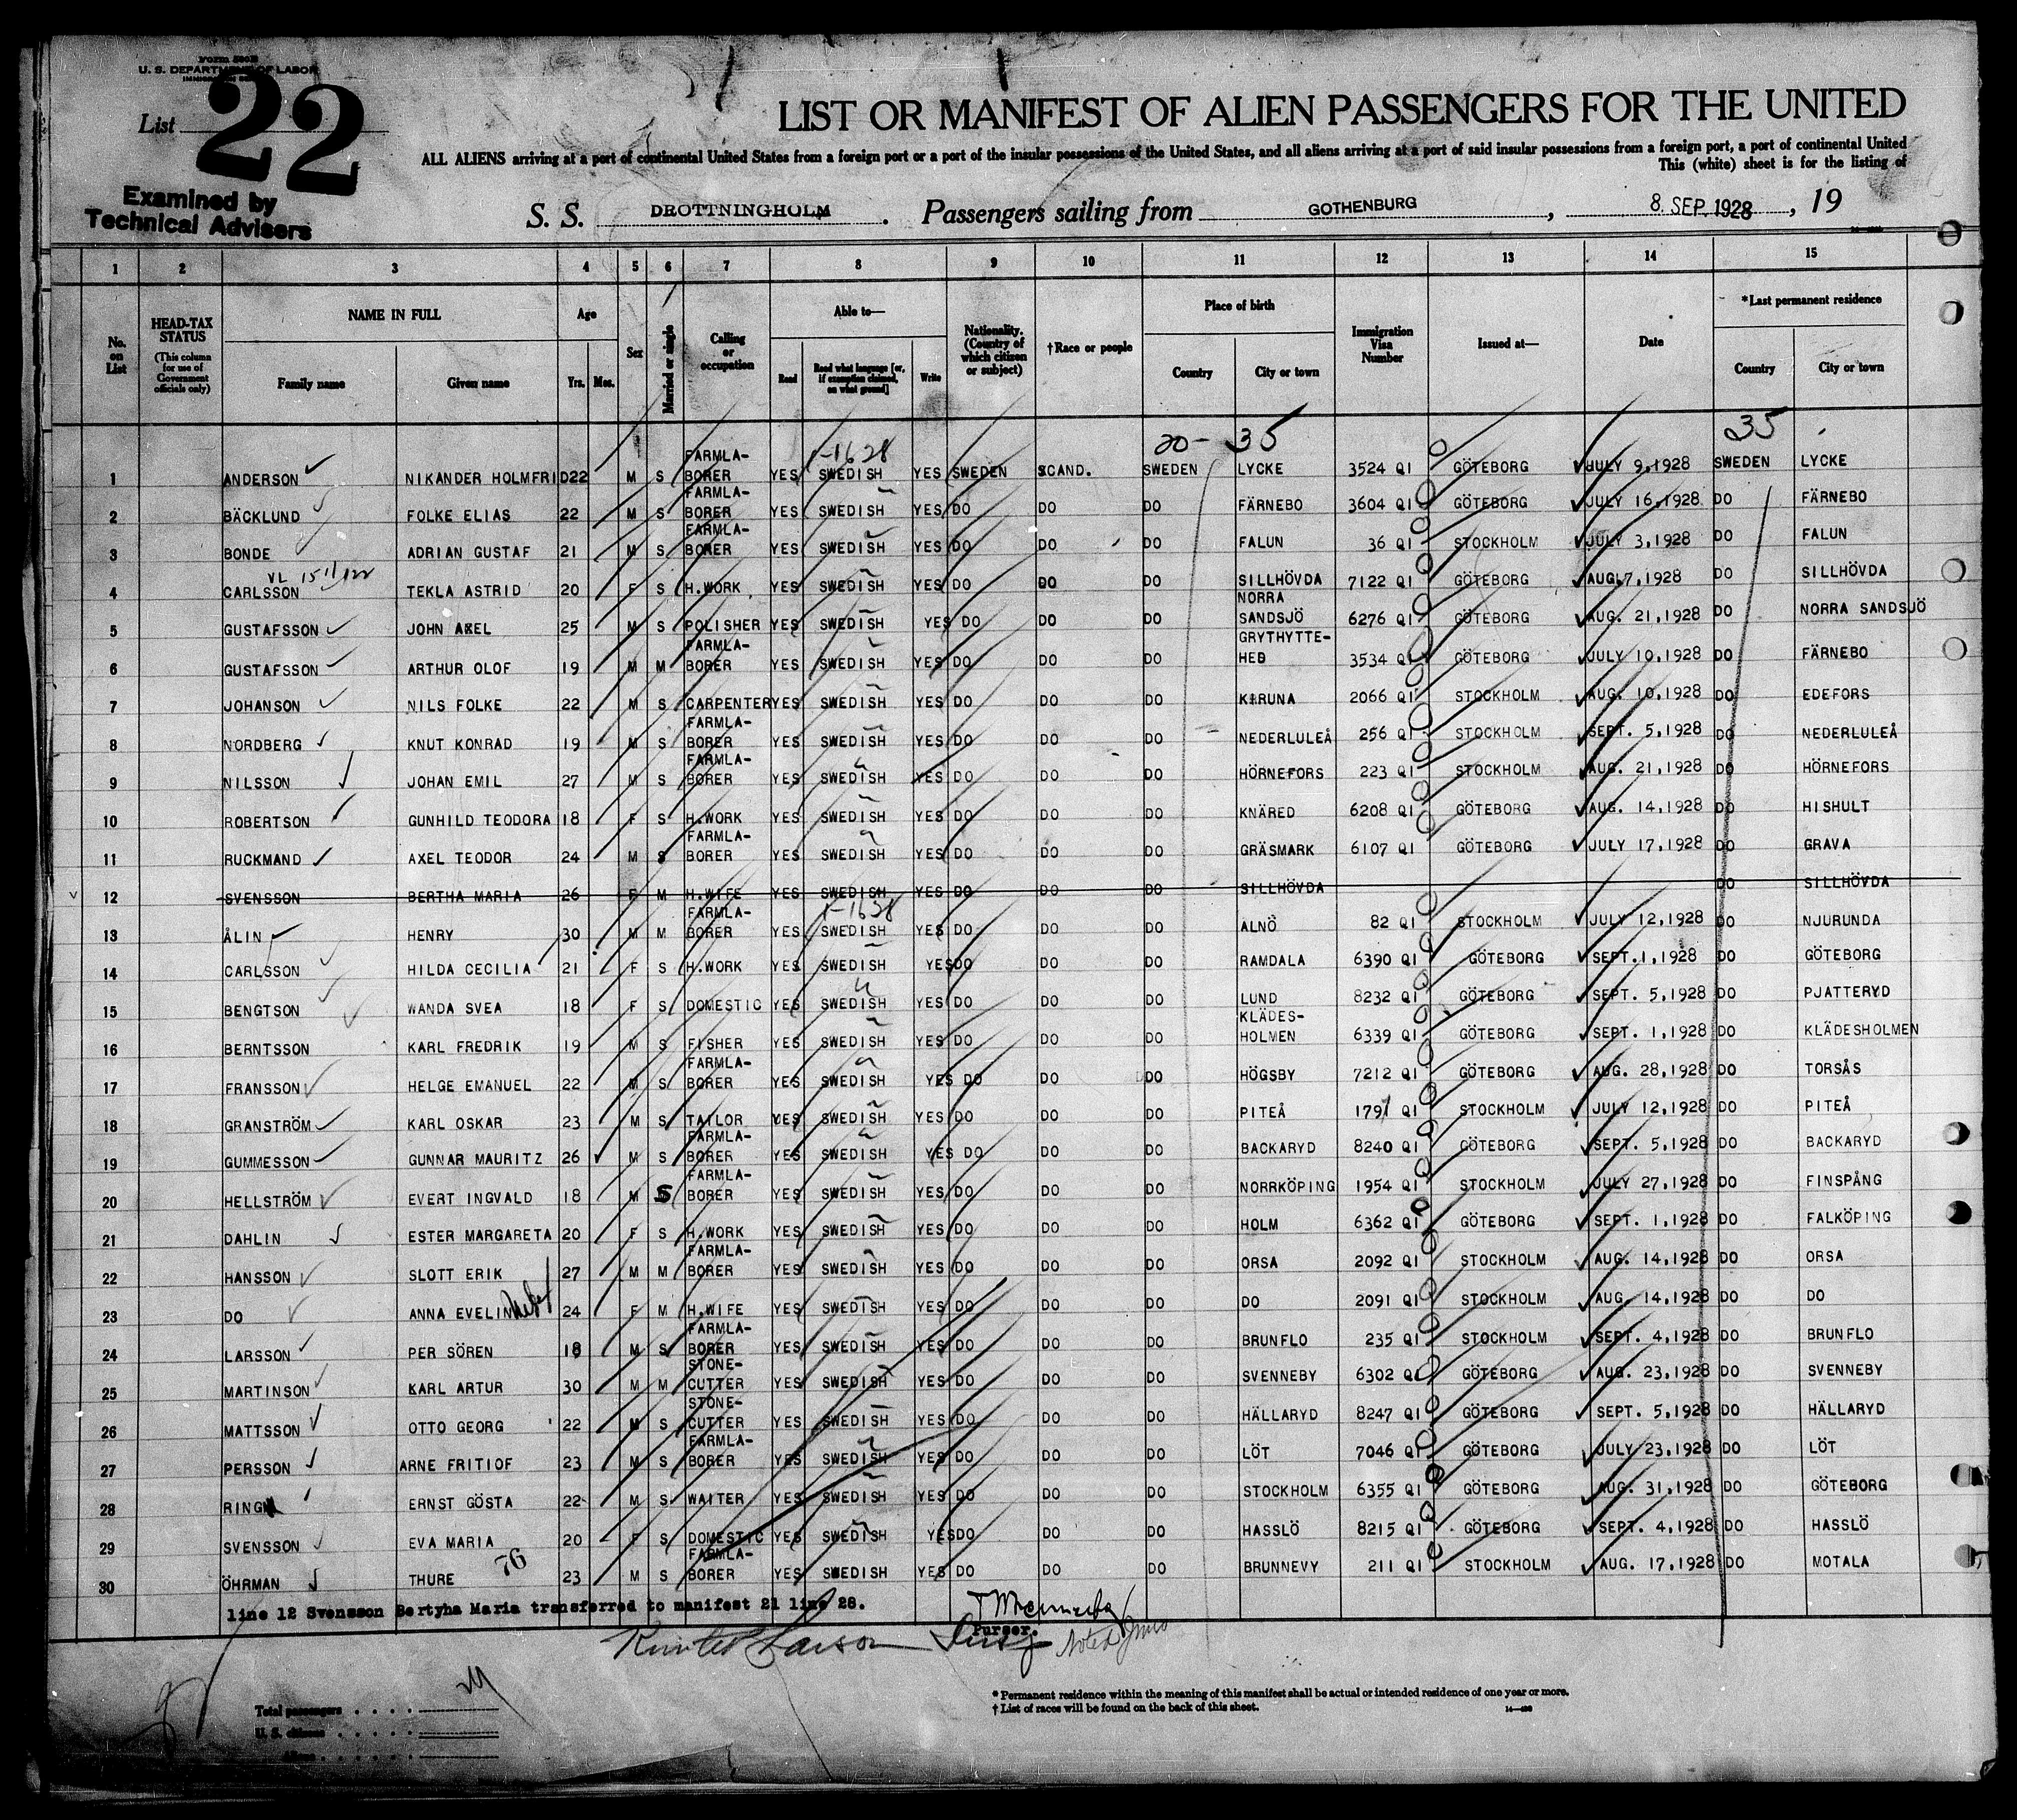 Form 500B
U. S. DEPARTMENT OF LABOR
List 22
Examined by
Technical Advisers
LIST OR MANIFEST OF ALIEN PASSENGERS FOR THE UNITED
ALL ALIENS arriving at a port of continental United States from a foreign port or a port of the insular possessions of the United States, and all aliens arriving at a port of said insular possessions from a foreign port, a port of continental United
This (white) sheet is for the listing of
S. S. DROTTNINGHOLM. Passengers sailing from GOTHENBURG, 8. SEP. 1928, 19
1 2 3 4 5 6 7 8 9 10 11 12 13 14 15
No. on List
HEAD-TAX STATUS (This column for use of Government officials only)
NAME IN FULL Family name Given name
Age Yrs. Mos.
Sex
Married or single
Calling or occupation
Able to— Read Read what language [or, if exemption claimed, on what ground] Write
Nationality. (Country of which citizen or subject)
†Race or people
Place of birth Country City or town
Immigration Visa Number
Issued at—
Date
*Last permanent residence Country City or town
1-1628 20- 35 35
1 ANDERSON NIKANDER HOLMFRID 22 M S FARMLA-BORER YES SWEDISH YES SWEDEN SCAND. SWEDEN LYCKE 3524 QI GÖTEBORG JULY 9,1928 SWEDEN LYCKE
2 BÄCKLUND FOLKE ELIAS 22 M S FARMLA-BORER YES SWEDISH YES DO DO DO FÄRNEBO 3604 QI GÖTEBORG JULY 16,1928 DO FÄRNEBO
3 BONDE ADRIAN GUSTAF 21 M S FARMLA-BORER YES SWEDISH YES DO DO DO FALUN 36 QI STOCKHOLM JULY 3,1928 DO FALUN
4 CARLSSON TEKLA ASTRID 20 F S H.WORK YES SWEDISH YES DO DO DO SILLHÖVDA 7122 QI GÖTEBORG AUG.7,1928 DO SILLHÖVDA
5 GUSTAFSSON JOHN AXEL 25 M S POLISHER YES SWEDISH YES DO DO DO NORRA SANDSJÖ 6276 QI GÖTEBORG AUG. 21,1928 DO NORRA SANDSJÖ
6 GUSTAFSSON ARTHUR OLOF 19 M M FARMLA-BORER YES SWEDISH YES DO DO DO GRYTHYTTE-HED 3534 QI GÖTEBORG JULY 10,1928 DO FÄRNEBO
7 JOHANSON NILS FOLKE 22 M S CARPENTER YES SWEDISH YES DO DO DO KIRUNA 2066 QI STOCKHOLM AUG. 10,1928 DO EDEFORS
8 NORDBERG KNUT KONRAD 19 M S FARMLA-BORER YES SWEDISH YES DO DO DO NEDERLULEÅ 256 QI STOCKHOLM SEPT. 5,1928 DO NEDERLULEÅ
9 NILSSON JOHAN EMIL 27 M S FARMLA-BORER YES SWEDISH YES DO DO DO HÖRNEFORS 223 QI STOCKHOLM AUG. 21,1928 DO HÖRNEFORS
10 ROBERTSON GUNHILD TEODORA 18 F S H.WORK YES SWEDISH YES DO DO DO KNÄRED 6208 QI GÖTEBORG AUG. 14,1928 DO HISHULT
11 RUCKMAND AXEL TEODOR 24 M S FARMLA-BORER YES SWEDISH YES DO DO DO GRÄSMARK 6107 QI GÖTEBORG JULY 17,1928 DO GRAVA
12 SVENSSON BERTHA MARIA 26 F M H.WIFE YES SWEDISH YES DO DO DO SILLHÖVDA DO SILLHÖVDA
1-1628
13 ÅLIN HENRY 30 M M FARMLA-BORER YES SWEDISH YES DO DO DO ALNÖ 82 QI STOCKHOLM JULY 12,1928 DO NJURUNDA
14 CARLSSON HILDA CECILIA 21 F S H.WORK YES SWEDISH YES DO DO DO RAMDALA 6390 QI GÖTEBORG SEPT.1,1928 DO GÖTEBORG
15 BENGTSON WANDA SVEA 18 F S DOMESTIC YES SWEDISH YES DO DO DO LUND 8232 QI GÖTEBORG SEPT. 5,1928 DO PJATTERYD
16 BERNTSSON KARL FREDRIK 19 M S FISHER YES SWEDISH YES DO DO DO KLÄDES-HOLMEN 6339 QI GÖTEBORG SEPT. 1,1928 DO KLÄDESHOLMEN
17 FRANSSON HELGE EMANUEL 22 M S FARMLA-BORER YES SWEDISH YES DO DO DO HÖGSBY 7212 QI GÖTEBORG AUG. 28,1928 DO TORSÅS
18 GRANSTRÖM KARL OSKAR 23 M S TAILOR YES SWEDISH YES DO DO DO PITEÅ 1791 QI STOCKHOLM JULY 12,1928 DO PITEÅ
19 GUMMESSON GUNNAR MAURITZ 26 M S FARMLA-BORER YES SWEDISH YES DO DO DO BACKARYD 8240 QI GÖTEBORG SEPT. 5,1928 DO BACKARYD
20 HELLSTRÖM EVERT INGVALD 18 M S FARMLA-BORER YES SWEDISH YES DO DO DO NORRKÖPING 1954 QI STOCKHOLM JULY 27,1928 DO FINSPÅNG
21 DAHLIN ESTER MARGARETA 20 F S H.WORK YES SWEDISH YES DO DO DO HOLM 6362 QI GÖTEBORG SEPT. 1,1928 DO FALKÖPING
22 HANSSON SLOTT ERIK 27 M M FARMLA-BORER YES SWEDISH YES DO DO DO ORSA 2092 QI STOCKHOLM AUG. 14,1928 DO ORSA
23 DO ANNA EVELIN 24 F M H.WIFE YES SWEDISH YES DO DO DO DO 2091 QI STOCKHOLM AUG. 14,1928 DO DO
24 LARSSON PER SÖREN 18 M S FARMLA-BORER YES SWEDISH YES DO DO DO BRUNFLO 235 QI STOCKHOLM SEPT. 4,1928 DO BRUNFLO
25 MARTINSON KARL ARTUR 30 M M STONE-CUTTER YES SWEDISH YES DO DO DO SVENNEBY 6302 QI GÖTEBORG AUG. 23,1928 DO SVENNEBY
26 MATTSSON OTTO GEORG 22 M S STONE-CUTTER YES SWEDISH YES DO DO DO HÄLLARYD 8247 QI GÖTEBORG SEPT. 5,1928 DO HÄLLARYD
27 PERSSON ARNE FRITIOF 23 M S FARMLA-BORER YES SWEDISH YES DO DO DO LÖT 7046 QI GÖTEBORG JULY 23,1928 DO LÖT
28 RING ERNST GÖSTA 22 M S WAITER YES SWEDISH YES DO DO DO STOCKHOLM 6355 QI GÖTEBORG AUG. 31,1928 DO GÖTEBORG
29 SVENSSON EVA MARIA 20 F S DOMESTIC YES SWEDISH YES DO DO DO HASSLÖ 8215 QI GÖTEBORG SEPT. 4,1928 DO HASSLÖ
30 ÖHRMAN THURE 76 23 M S FARMLA-BORER YES SWEDISH YES DO DO DO BRUNNEVY 211 QI STOCKHOLM AUG. 17,1928 DO MOTALA
line 12 Svensson Bertyha Maria transferred to manifest 21 line 28.
Purser.
Larson
Total passengers
U. S. citizens
Aliens
* Permanent residence within the meaning of this manifest shall be actual or intended residence of one year or more.
† List of races will be found on the back of this sheet.